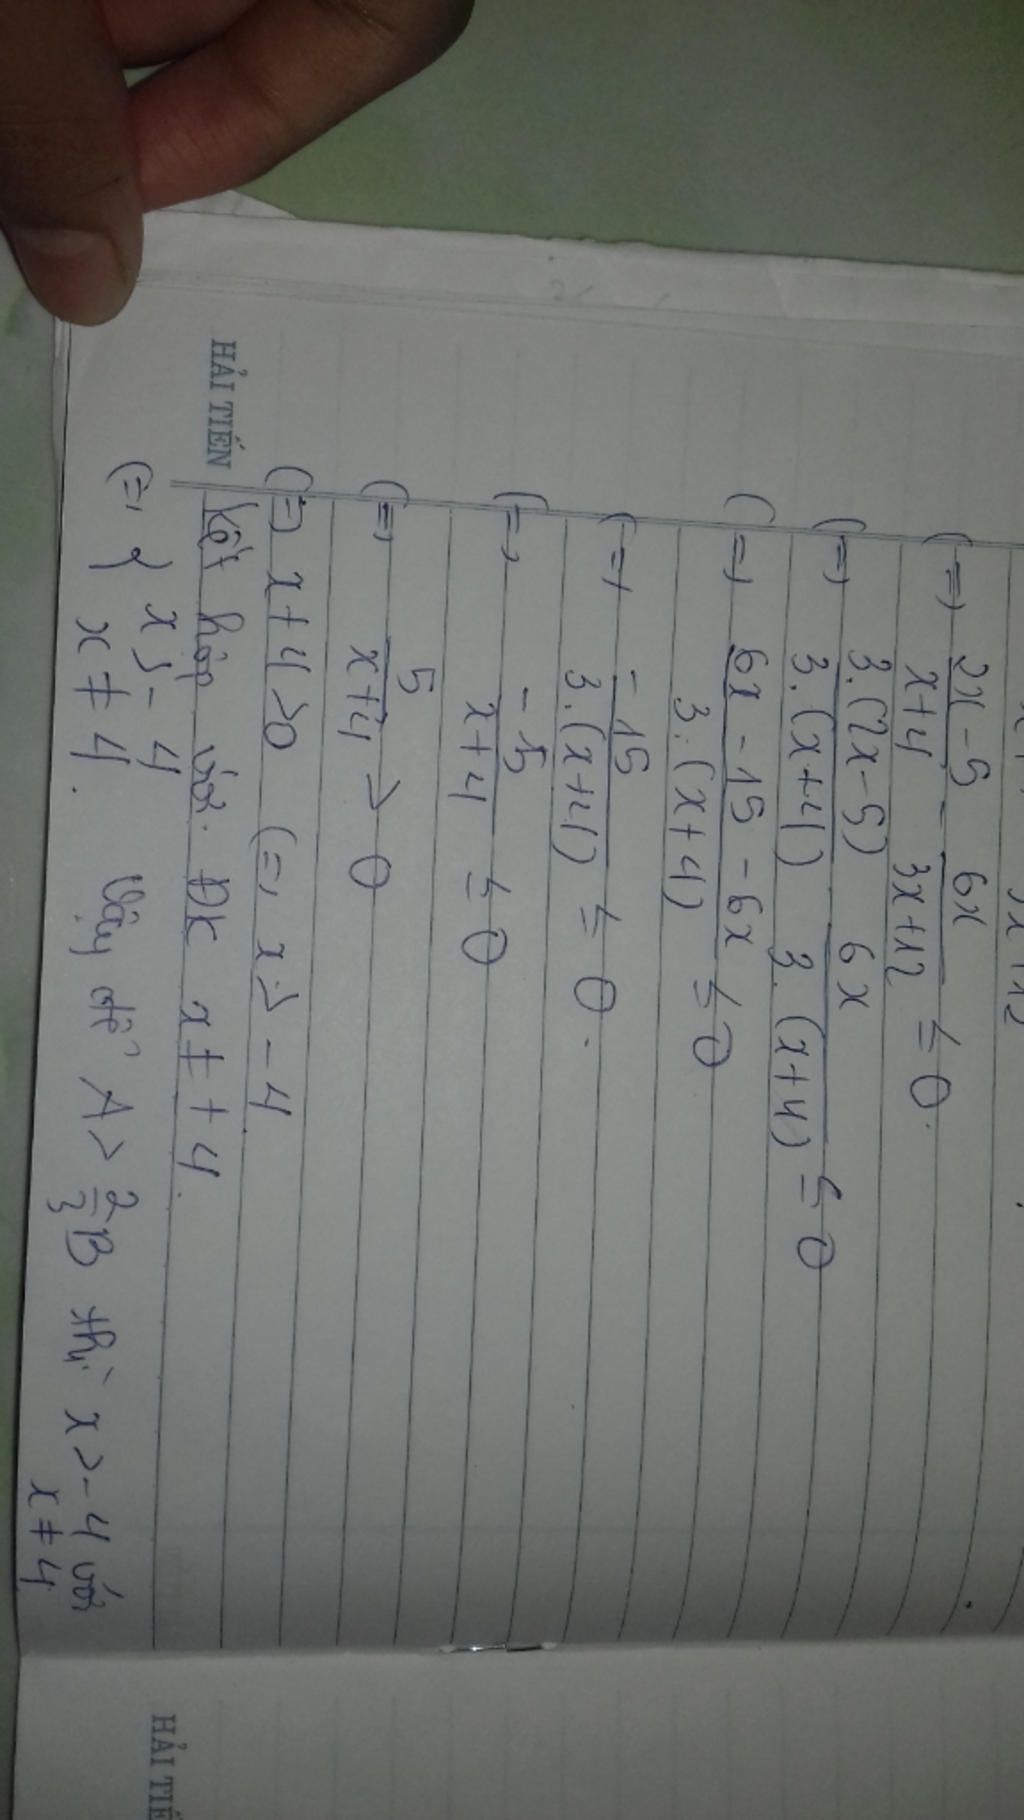 (=) 2x - 5 / x+4 - 6x / 3x+12 ≤ 0.
(=) 3.(2x-5) / 3.(x+4) 6x / 3.(x+4) ≤ 0
(=) 6x - 15 - 6x / 3.(x+4) ≤ 0
(=) -15 / 3.(x+4) ≤ 0.
(=) -5 / x+4 ≤ 0
(=) 5 / x+4 > 0
(=) x+4 >0 (=) x > -4
HẢI TIẾN
kết hợp với ĐK x ≠ ± 4.
(=) { x > -4
x ≠ 4. Vậy để A > 2/3 B thì x > -4 với
x ≠ 4
HẢI TIẾ